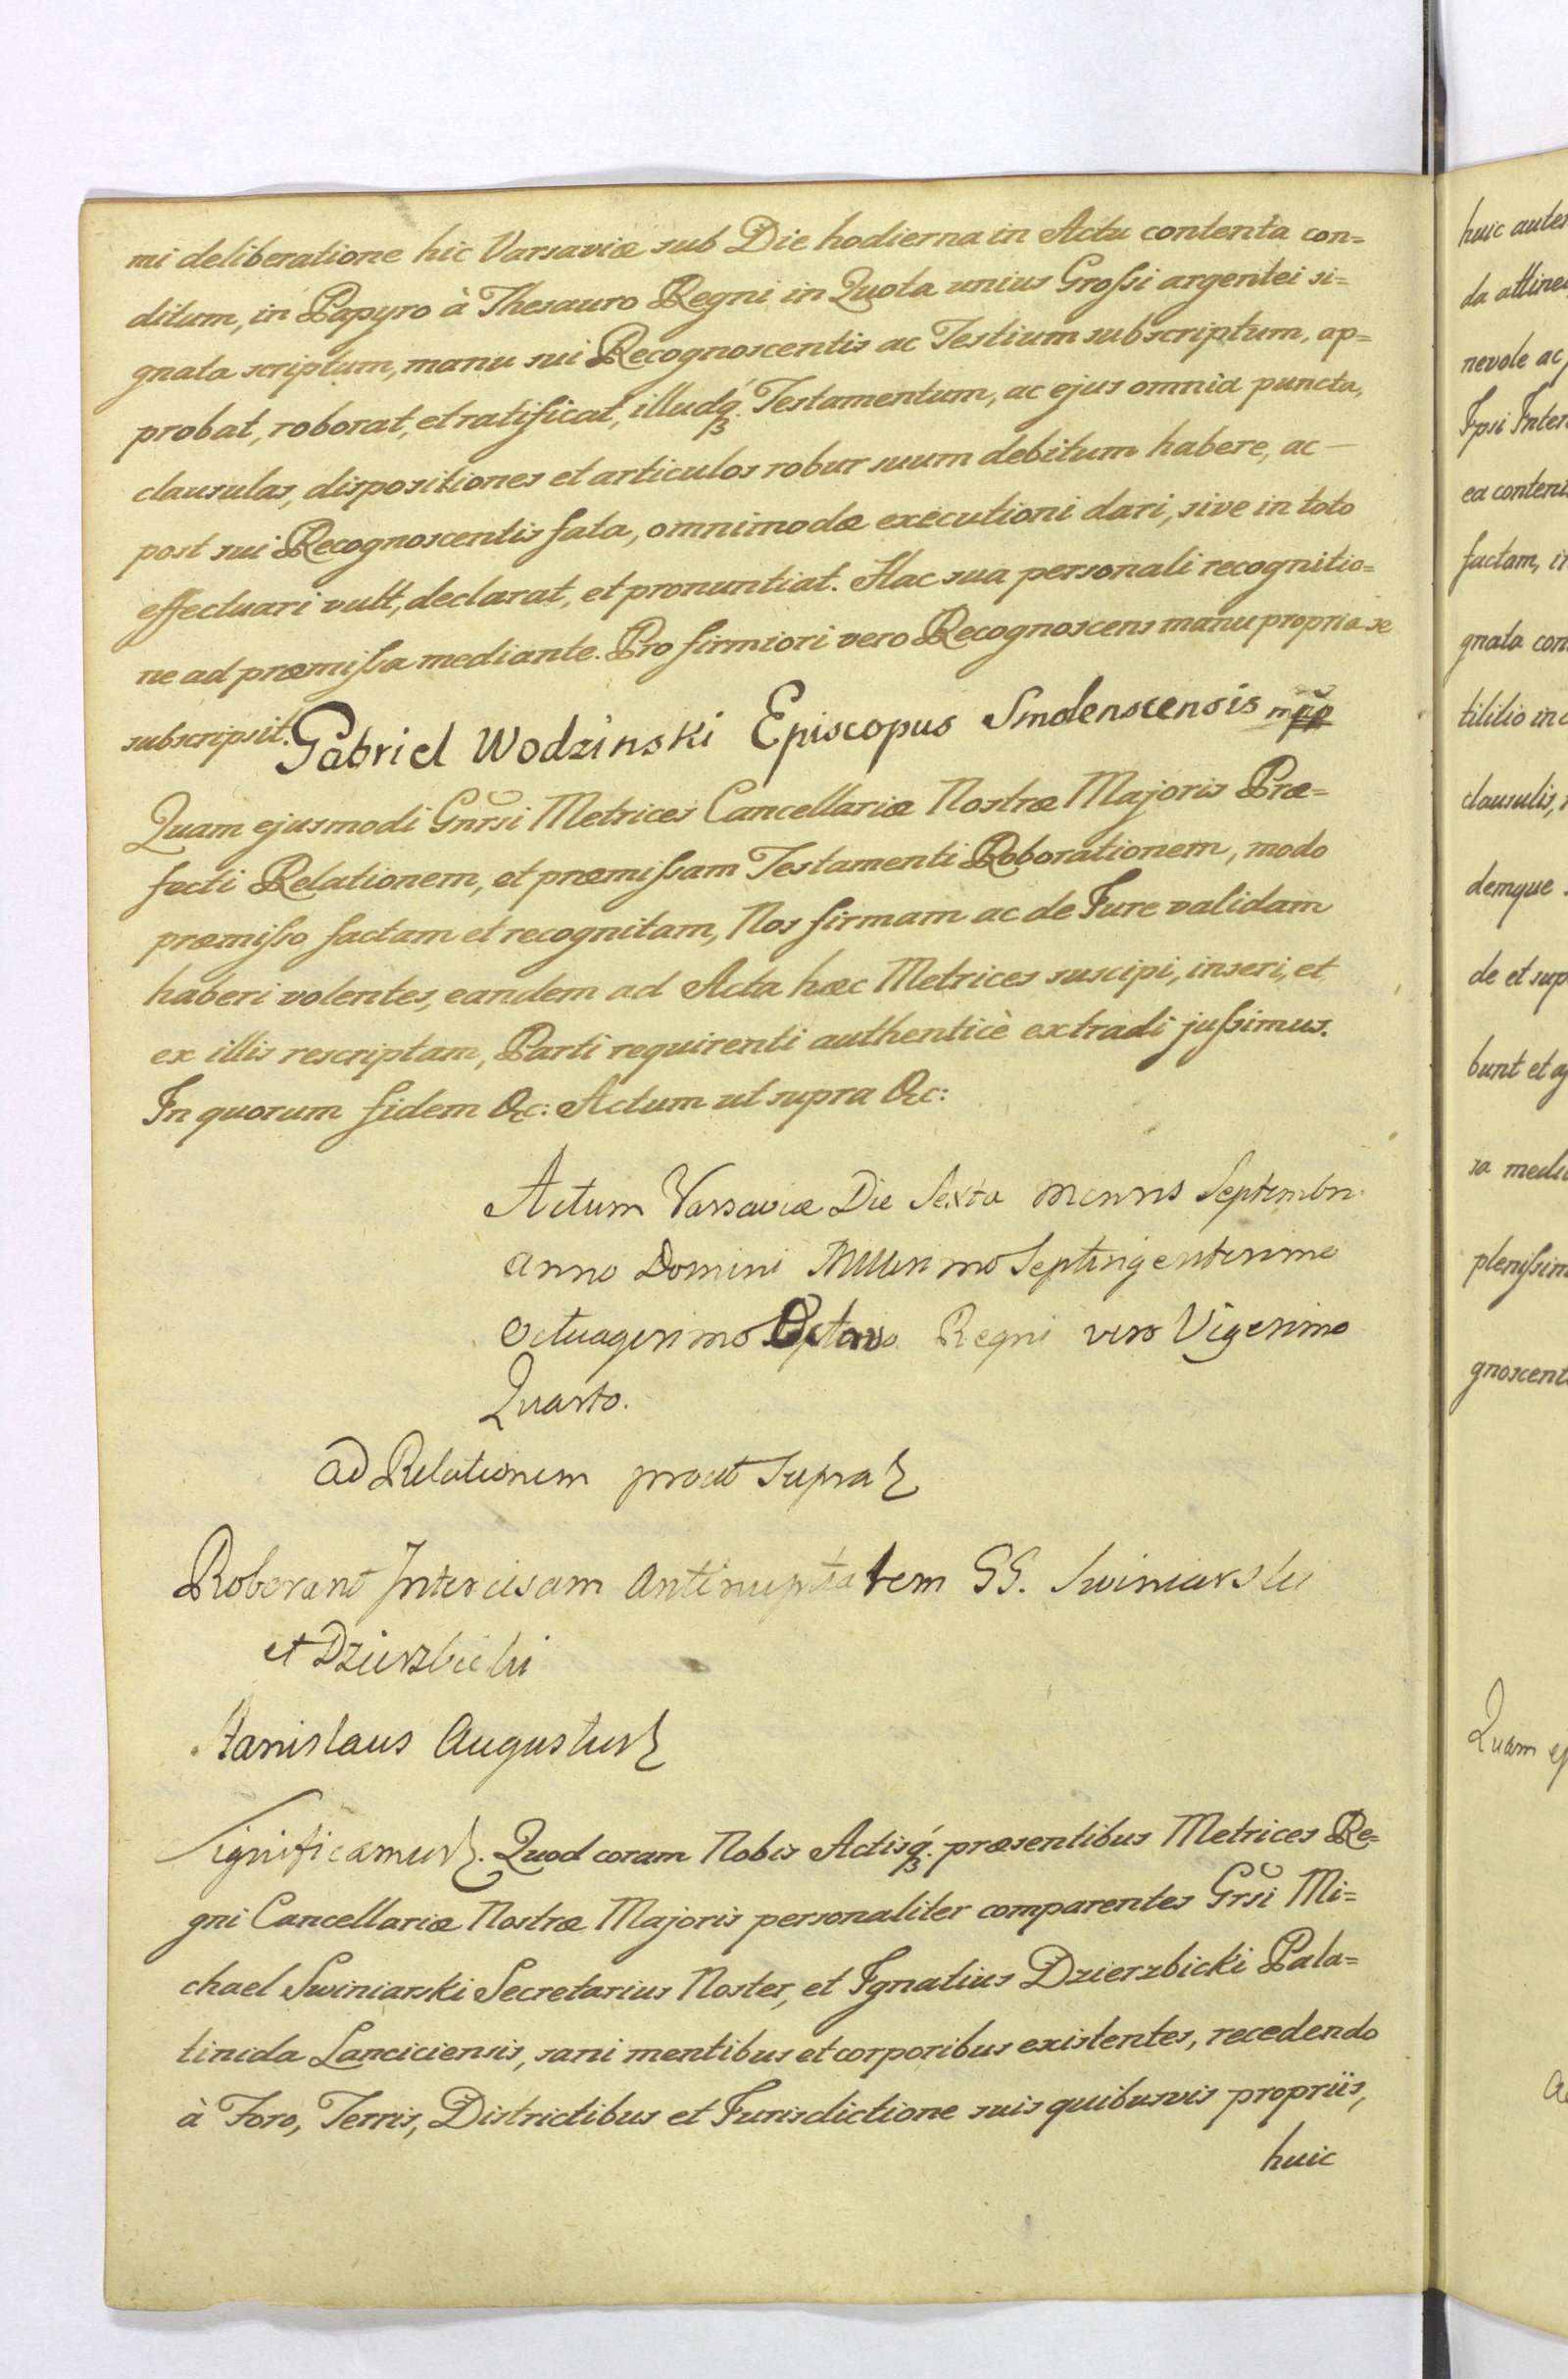 mi deliberatione hic Varsaviæ sub Die hodierna in Actu contenta con=
ditum, in Papyro à Thesauro Regni in Quota unius Grossi argentei si=
gnata scriptum, manu sui Recognoscentis ac Testium subscriptum, ap=
probat, roborat, et ratificat, illudq́ꝫ. Testamentum, ac ejus omnia puncta,
clausulas, dispositiones et articulos robur suum debitum habere, ac —
post sui Recognoscentis fata, omnimodæ executioni dari, sive in toto
effectuari vult, declarat, et pronuntiat. Hac sua personali recognitio=
ne ad præmissa mediante. Pro firmiori vero Recognoscens manu propria se
subscripsit. Gabriel Wodzinski Episcopus Smolenscensis mpp
Quam ejusmodi Gnrsi Metrices Cancellariæ Nostræ Majoris Præ=
fecti Relationem, et præmissam Testamenti Roborationem, modo
præmisso factam et recognitam, Nos firmam ac de Jure validam
haberi volentes, eandem ad Acta hæc Metrices suscipi, inseri, et
ex illis rescriptam, Parti requirenti authenticè extradi jussimus.
In quorum fidem &c: Actum ut supra &c:
Actum Varsaviæ Die Sexta Mensis Septembri.
Anno Domini Millesimo Septingentesimo
Octuagesimo Octavo Regni vero Vigesimo
Quarto.
ad Relationem prout supra
Roborant Intercisam Antinuptialem GG. Swiniarski
et Dzierzbicki
Stanislaus Augustus
Significamus. Quod coram Nobis Actisq́ꝫ. præsentibus Metrices Re=
gni Cancellariæ Nostræ Majoris personaliter comparentes Grsi Mi=
chael Swiniarski Secretarius Noster, et Ignatius Dzierzbicki Pala=
tinida Lanciciensis, sani mentibus et corporibus existentes, recedendo
à Foro, Terris, Districtibus et Jurisdictione suis quibusvis propriis,
huic
huic
da
nevole ac
Ipsi
ea
factam,
gnata
tililio
clausulis,
demque
de et
bunt et
sa
gnoscent
Quam